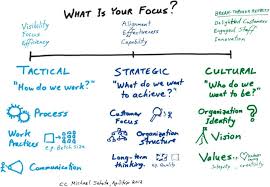 WHAT IS YOUR FOCUS?
VISIBILITY
FOCUS
EFFICIENCY
ALIGNMENT
EFFECTIVENESS
CAPABILITY
BREAK-THROUGH RESULTS
DELIGHTED CUSTOMERS
ENGAGED STAFF
INNOVATION
TACTICAL
"HOW DO WE WORK?"
PROCESS
WORK
PRACTICES
e.g. BATCH SIZE
COMMUNICATION
STRATEGIC
"WHAT DO WE WANT
TO ACHIEVE?"
CUSTOMER
FOCUS
ORGANIZATION
STRUCTURE
LONG-TERM
THINKING.
e.g. QUALITY
CULTURAL
"WHO DO WE
WANT TO BE?"
ORGANIZATION
IDENTITY
VISION
VALUES..
e.g.
INTEGRITY
CREATIVITY
CC MICHAEL SAHOTA, AGILITRIX 2012